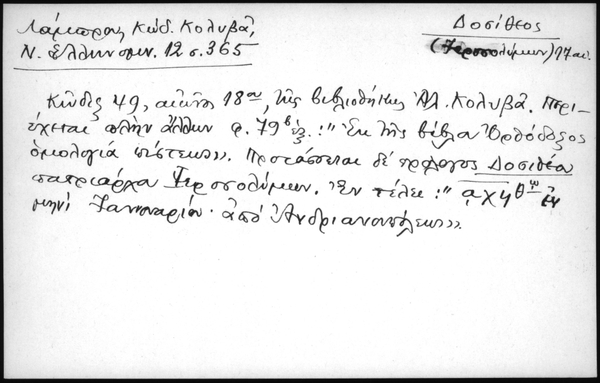 Λάμπρος Κώδ. Κολυβᾶ,
Ν. Ἑλληνομν. 12 σ. 365
Δοσίθεος
(Ἱεροσολύμων) 17 αἰ.
Κῶδιξ 49, αἰῶνος 18ου, τῆς βιβλιοθήκης Ἀλ. Κολυβᾶ. Περι-
έχεται πλὴν ἄλλων φ. 79β ἑξ.: "Ἐκ τῆς βίβλου Ὀρθόδοξος
ὁμολογία πίστεως». Προτάσσεται δέ πρόλογος Δοσιθέου
πατριάρχου Ἱεροσολύμων. Ἐν τέλει: "αχϟθῳ ἐν
μηνί Ἰανουαρίου· ἀπό Ἀνδριανουπόλεως».